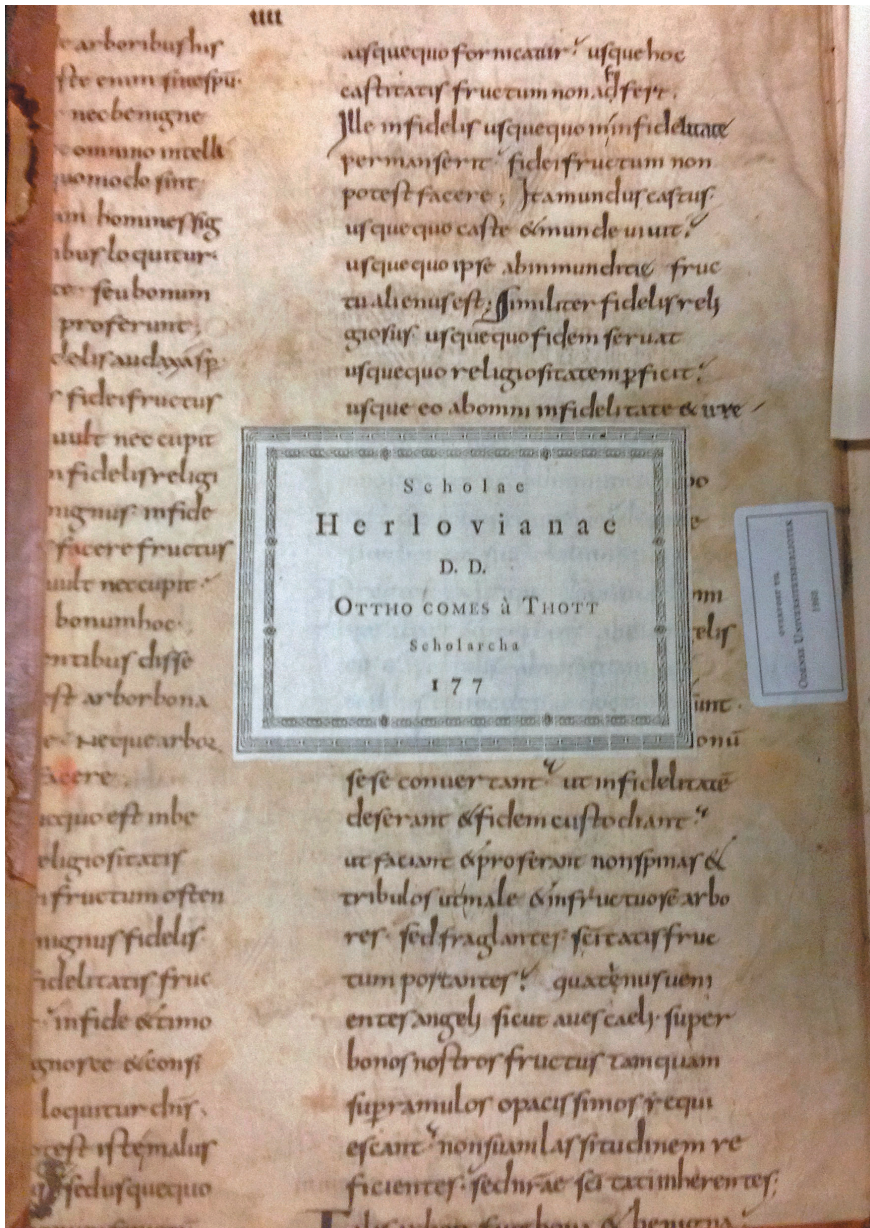 IIII
arboribus his
ste enim sive spū·
nec benigne
omnino intelli
quomodo sint
homines sig
ibus loquitur·
seu bonum
proferunt;
delis audax asp
fidei fructus
uult nec cupit
nfidelis religi
nignus· infide
facere fructus
uult nec cupit·
bonum hoc·
entibus disse
est arbor bona
Neque arbor
facere·
quo est in be
eligiositatis
fructum osten
nignus fidelis·
fidelitatis fruc
in fide & timo
gnosce & consi
loquitur chrs·
otest iste malus
sed usquequo
usquequo fornicatur· usque hoc
castitatis fructum non adfert·
Ille infidelis usquequo in infidelitate
permanserit· fidei fructum non
potest facere; Ita mundus castus·
usquequo caste & munde uiuit·
usquequo ipse ab inmunditie fruc
tu alienus est; Similiter fidelis reli
giosus· usquequo fidem seruat
usquequo religiositatem ꝑficit·
usque eo ab omni infidelitate & ure
Scholae
Herlovianae
D. D.
Ottho comes à Thott
Scholarcha
177
OVERFØRT TIL
ODENSE UNIVERSITETSBIBLIOTEK
elis
unt·
onū
sese conuertant· ut infidelitatē
deserant & fidem custodiant·
ut faciant & proferant non spinas &
tribulos ut male & infructuose arbo
res· sed fraglantes sc̄itatis fruc
tum portantes· quatenus ueni
entes angeli sicut aues caeli super
bonos nostros fructus tamquam
supra ramulos opacissimos requi
escant· non suam lassitudinem re
ficientes· sed nr̄ae sc̄itati inherentes;